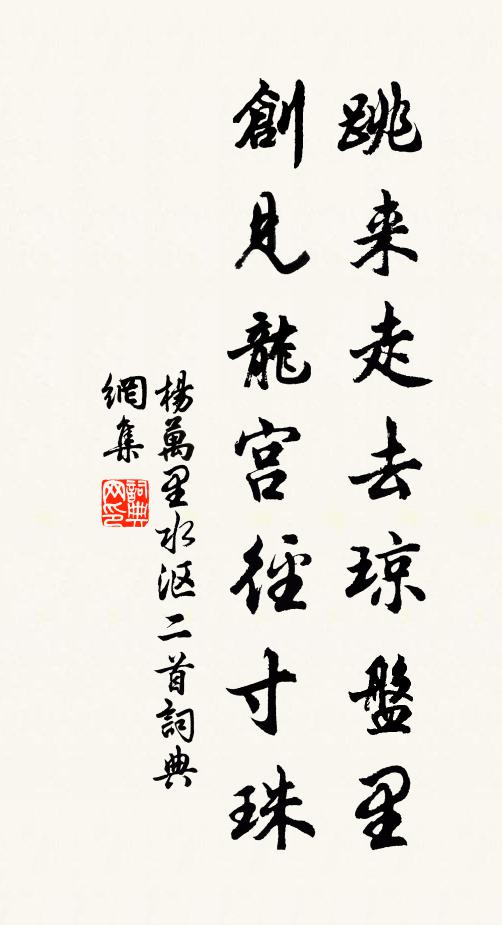 跳来走去琼盤里
創見龍宫徑寸珠
楊萬里水漚二首詞典
網集
詞典
网印